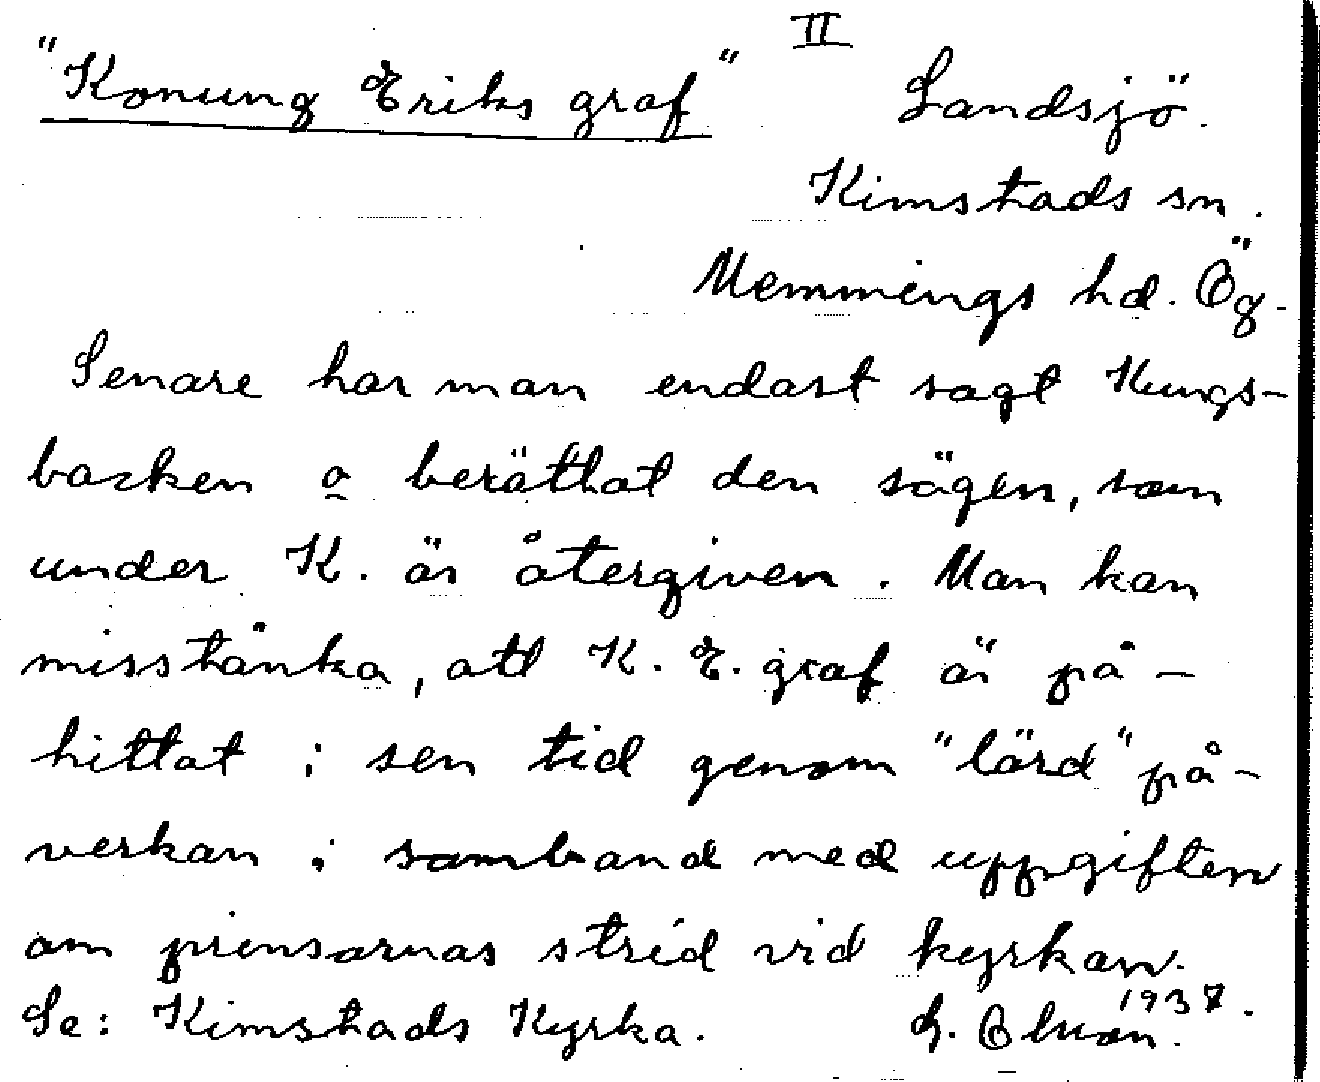 II
"Konung Eriks graf" Landsjö.
Kimstads sn.
Memmings hd. Ög.
Senare har man endast sagt Kungs-
backen o berättat den sägen, som
under K. är återgiven. Man kan
misstänka, att K. E. graf är på-
hittat i sen tid genom "lärd" på-
verkan i samband med uppgiften
om prinsarnas strid vid kyrkan.
Se: Kimstads Kyrka. 1937.